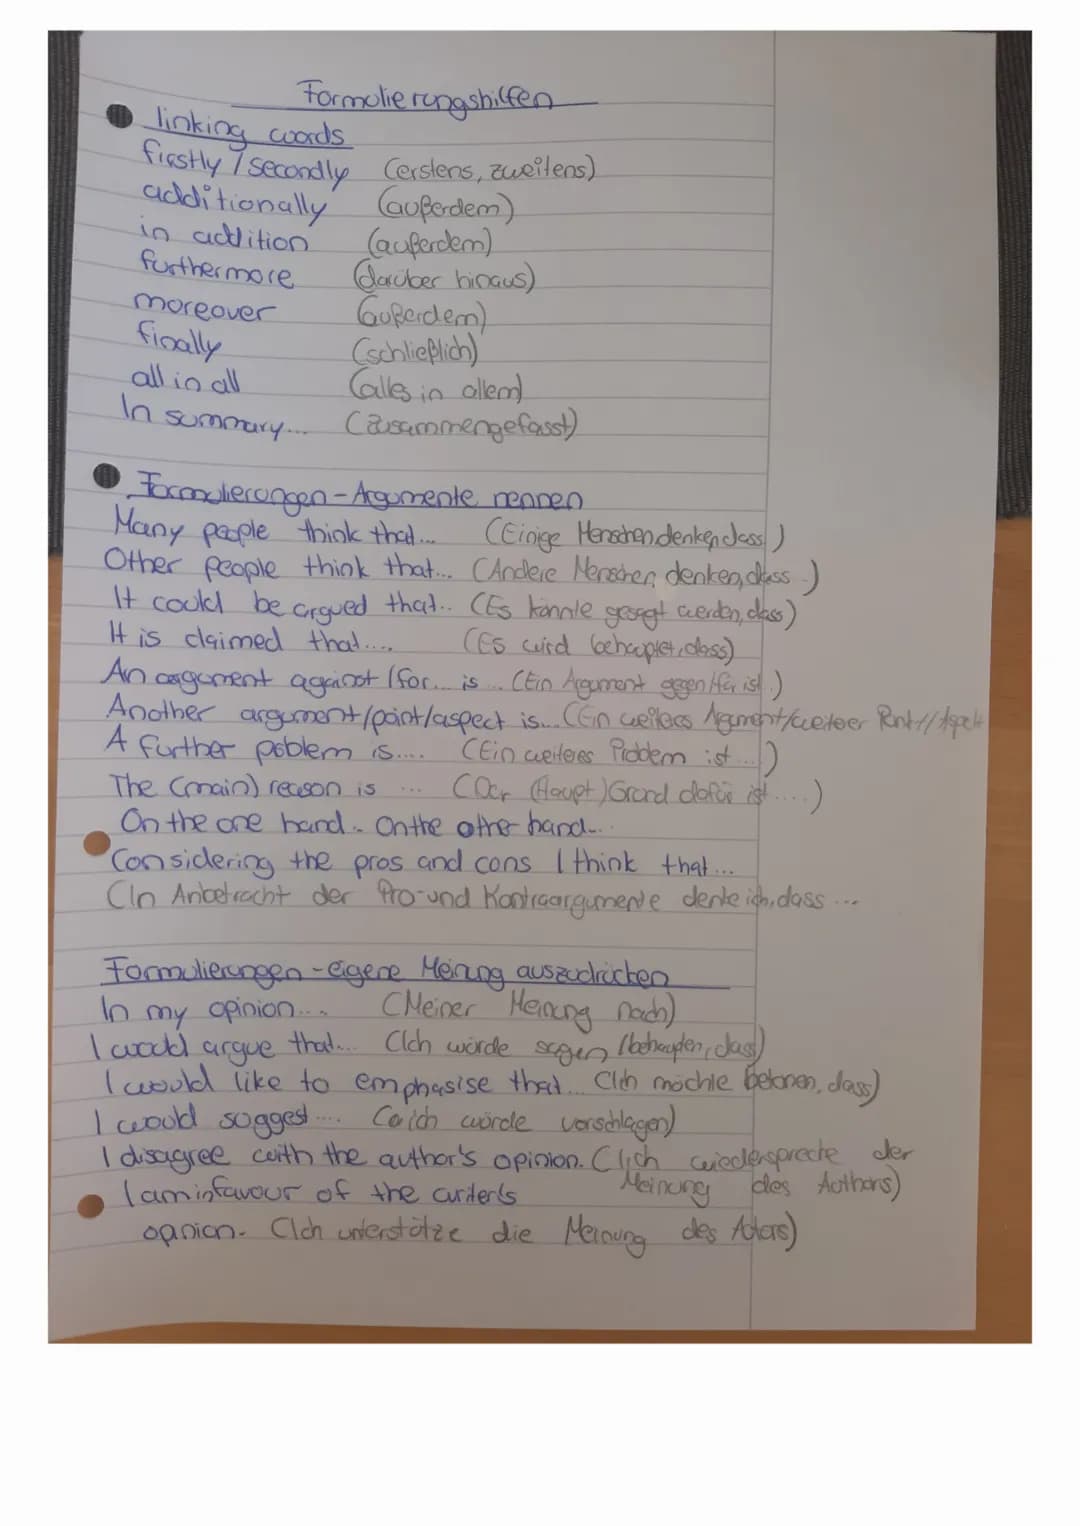 Formulierungshilfen
linking words
firstly / secondly (erstens, zweitens)
additionally (außerdem)
in addition (außerdem)
furthermore (darüber hinaus)
moreover (außerdem)
finally (schließlich)
all in all (alles in allem)
In summary... (zusammengefasst)
Formulierungen - Argumente nennen
Many people think that... (Einige Menschen denken, dass)
Other people think that... (Andere Menschen denken, dass..)
It could be argued that.. (Es könnte gesagt werden, dass)
It is claimed that.... (Es wird behauptet, dass)
An argument against / for... is ... (Ein Argument gegen/für ist..)
Another argument/point/aspect is... (Ein weiteres Argument/weiterer Punkt//Aspekt
A further poblem is.... (Ein weiteres Problem ist...)
The (main) reason is ... (Der (Haupt)Grund dafür ist....)
On the one hand.. On the other hand...
Considering the pros and cons I think that...
(In Anbetracht der Pro-und Kontraargumente denke ich, dass ...
Formulierungen - eigene Meinung auszudrücken
In my opinion... (Meiner Meinung nach)
I would argue that... (Ich würde sagen / behaupten, dass)
I would like to emphasise that... (Ich möchte betonen, dass)
I would suggest.... (ich würde vorschlagen)
I disagree with the author's opinion. (Ich wiederspreche der
Meinung des Authors)
I am in favour of the writer's
opinion. (Ich unterstütze die Meinung des Autors)